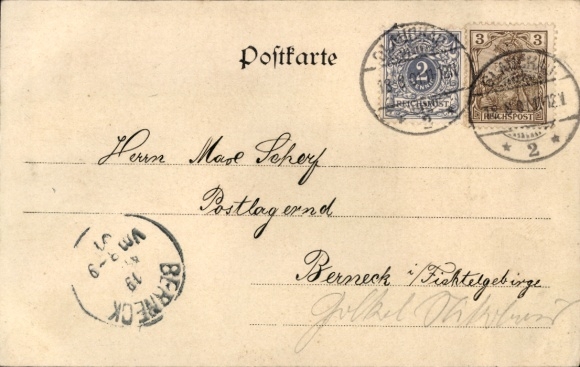 Postkarte
2
REICHSPOST
3 3
REICHSPOST
2
2
Herrn Max Scherf
Postlagernd
Berneck i/Fichtelgebirge
BERNECK
19
8-9
Vm
01